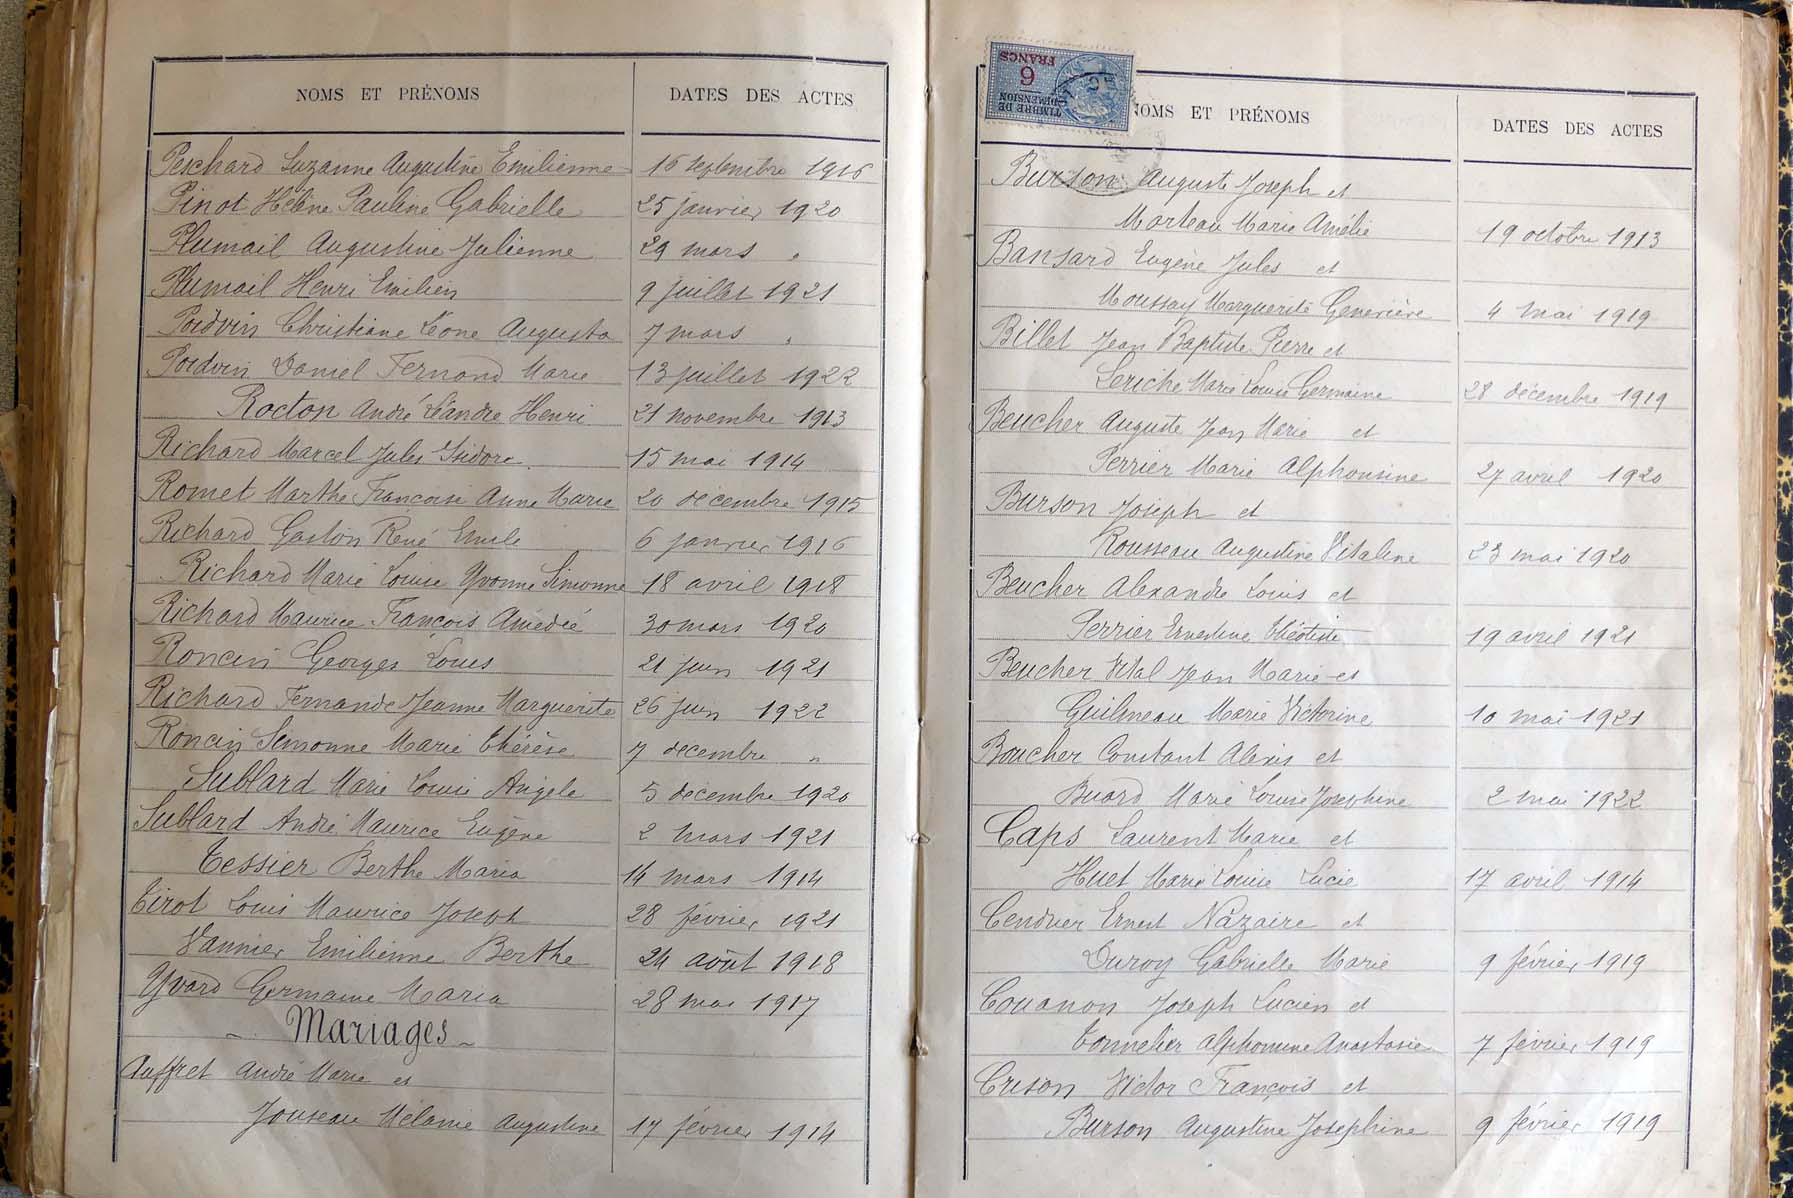 NOMS ET PRÉNOMS DATES DES ACTES
Peschard Suzanne Augustine Emilienne 16 septembre 1916
Pinot Hélène Pauline Gabrielle 25 janvier 1920
Plumail Augustine Julienne 29 mars "
Plumail Henri Emilien 9 juillet 1921
Poidvin Christiane Léone Augusta 7 mars "
Poidvin Daniel Fernand Marie 13 juillet 1922
Rocton André Léandre Henri 21 novembre 1913
Richard Marcel Jules Isidore 15 mai 1914
Romet Marthe Françoise Anne Marie 20 décembre 1915
Richard Gaston René Emile 6 janvier 1916
Richard Marie Louise Yvonne Simonne 18 avril 1918
Richard Maurice François Amédée 30 mars 1920
Roncin Georges Louis 21 juin 1921
Richard Fernande Jeanne Marguerite 26 juin 1922
Roncin Simonne Marie Thérèse 7 décembre "
Sublard Marie Louise Angèle 5 décembre 1920
Sublard André Maurice Eugène 2 mars 1921
Tessier Berthe Maria 14 mars 1914
Tirot Louis Maurice Joseph 28 février 1921
Vannier Emilienne Berthe 24 août 1918
Yvard Germaine Maria 28 mai 1917
- Mariages -
Auffret André Marie et
Jouseau Mélanie Augustine 17 février 1914
TIMBRE DE
DIMENSION
6
FRANCS
NOMS ET PRÉNOMS DATES DES ACTES
Burson Auguste Joseph et
Morteau Marie Amélie 19 octobre 1913
Bansard Eugène Jules et
Moussay Marguerite Geneviève 4 mai 1919
Billet Jean Baptiste Pierre et
Leriche Marie Louise Germaine 28 décembre 1919
Beucher Auguste Jean Marie et
Perrier Marie Alphonsine 27 avril 1920
Burson Joseph et
Rousseau Augustine Vitaline 23 mai 1920
Beucher Alexandre Louis et
Perrier Ernestine Théotiste 19 avril 1921
Beucher Vital Jean Marie et
Guilmeau Marie Victorine 10 mai 1921
Boucher Constant Alexis et
Buard Marie Louise Josephine 2 mai 1922
Caps Laurent Marie et
Huet Marie Louise Lucie 17 avril 1914
Cendrier Ernest Nazaire et
Duroy Gabrielle Marie 9 février 1919
Couanon Joseph Lucien et
Tonnelier Alphonsine Anastasie 7 février 1919
Crison Victor François et
Burson Augustine Josephine 9 février 1919